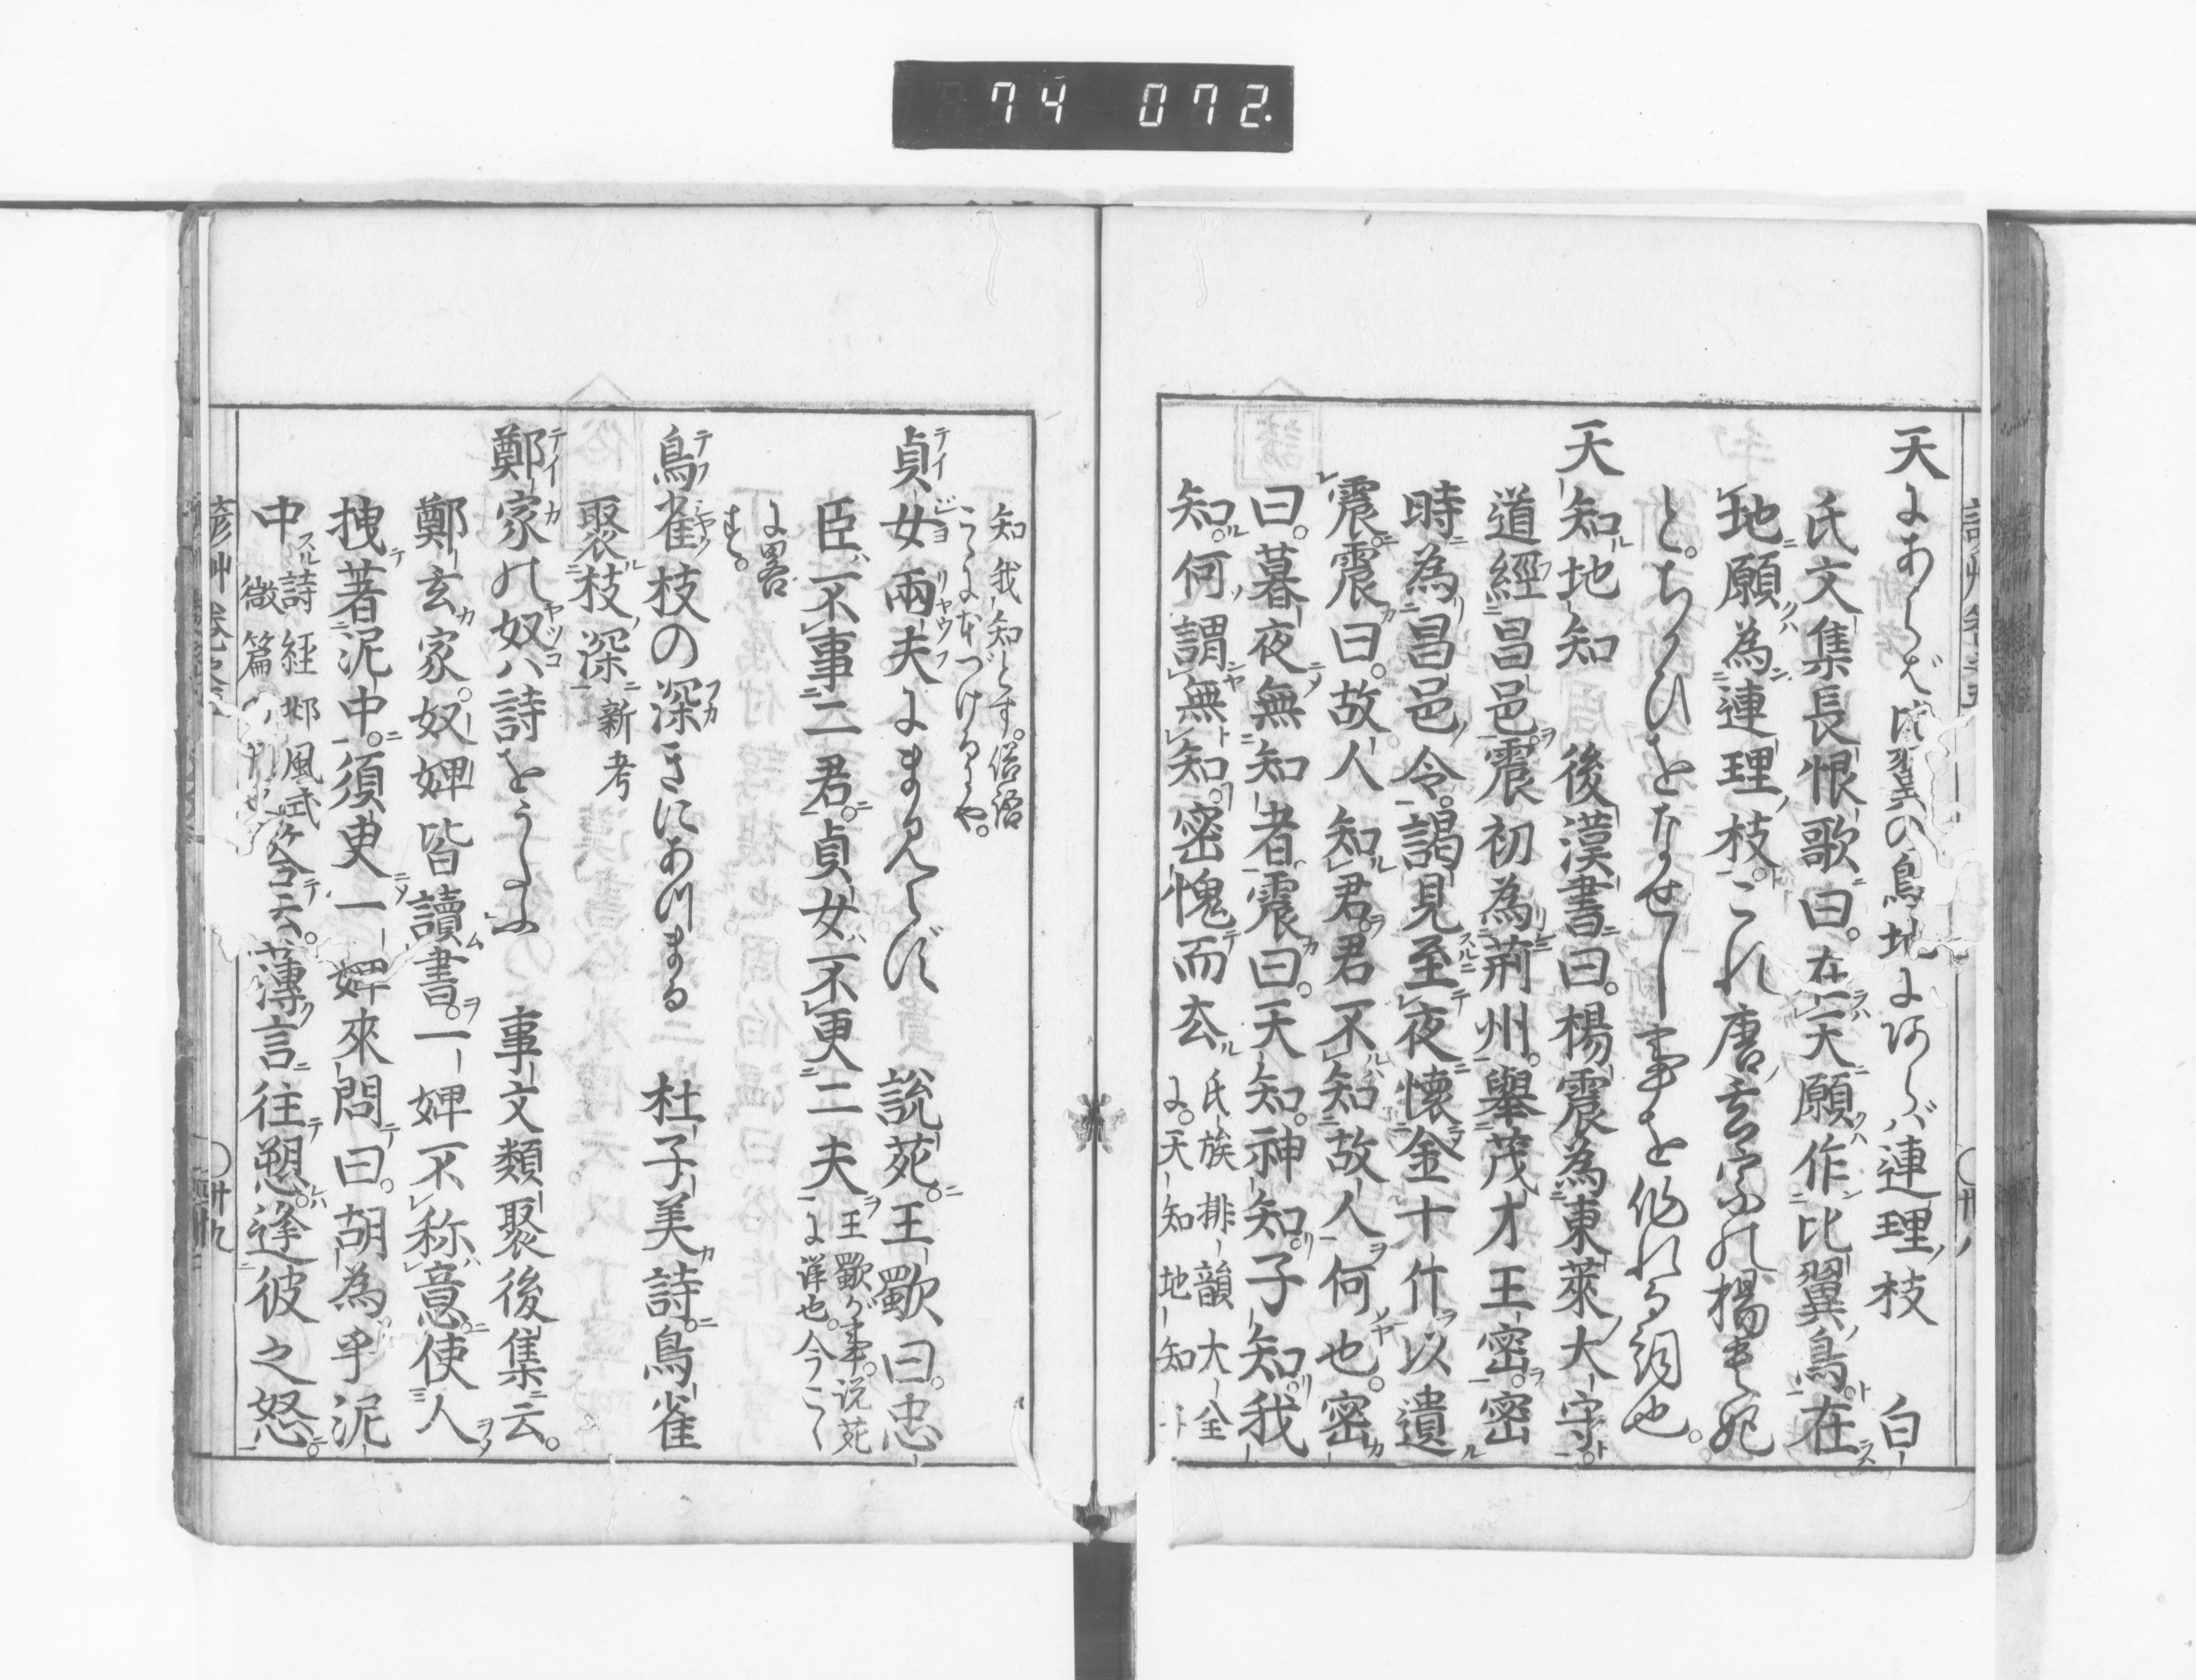 74 072.
天にあらば比翼の鳥地にあらバ連理ノ枝 白
氏文集長恨歌曰。在天願作比翼鳥在
地願為連理枝。これ唐ノ玄宗の楊貴妃
と。ちかひをなせし事を作れる詞也。
天知地知 後漢書曰。楊震為東萊大守。
道經昌邑。震初為荊州。舉茂才王密。密
時為昌邑令。謁見至夜懐金十斤以遺
震。震曰。故人知君君不知故人何也。密
曰。暮夜無知者。震曰。天知。神知。子知。我
知。何謂無知。密愧而去 氏族排韻大全
に。天知地知
知我知とす。俗語
こゝにもとづけるにや。
貞女兩夫にまみえず 說苑。王歜曰。忠
臣不事二君。貞女不更二夫 王歜ガ事。説苑
に詳也。今こゝ
に畧
す。
鳥雀枝の深きにあつまる 杜子美詩。鳥雀
聚枝深 新考
鄭家の奴ハ詩をうたふ 事文類聚後集云。
鄭玄家。奴婢皆讀書。一婢不称意。使人
拽著泥中。須臾一婢來問曰。胡為乎泥
中 詩経邶風式
微篇
答云。薄言往愬。逢彼之怒。